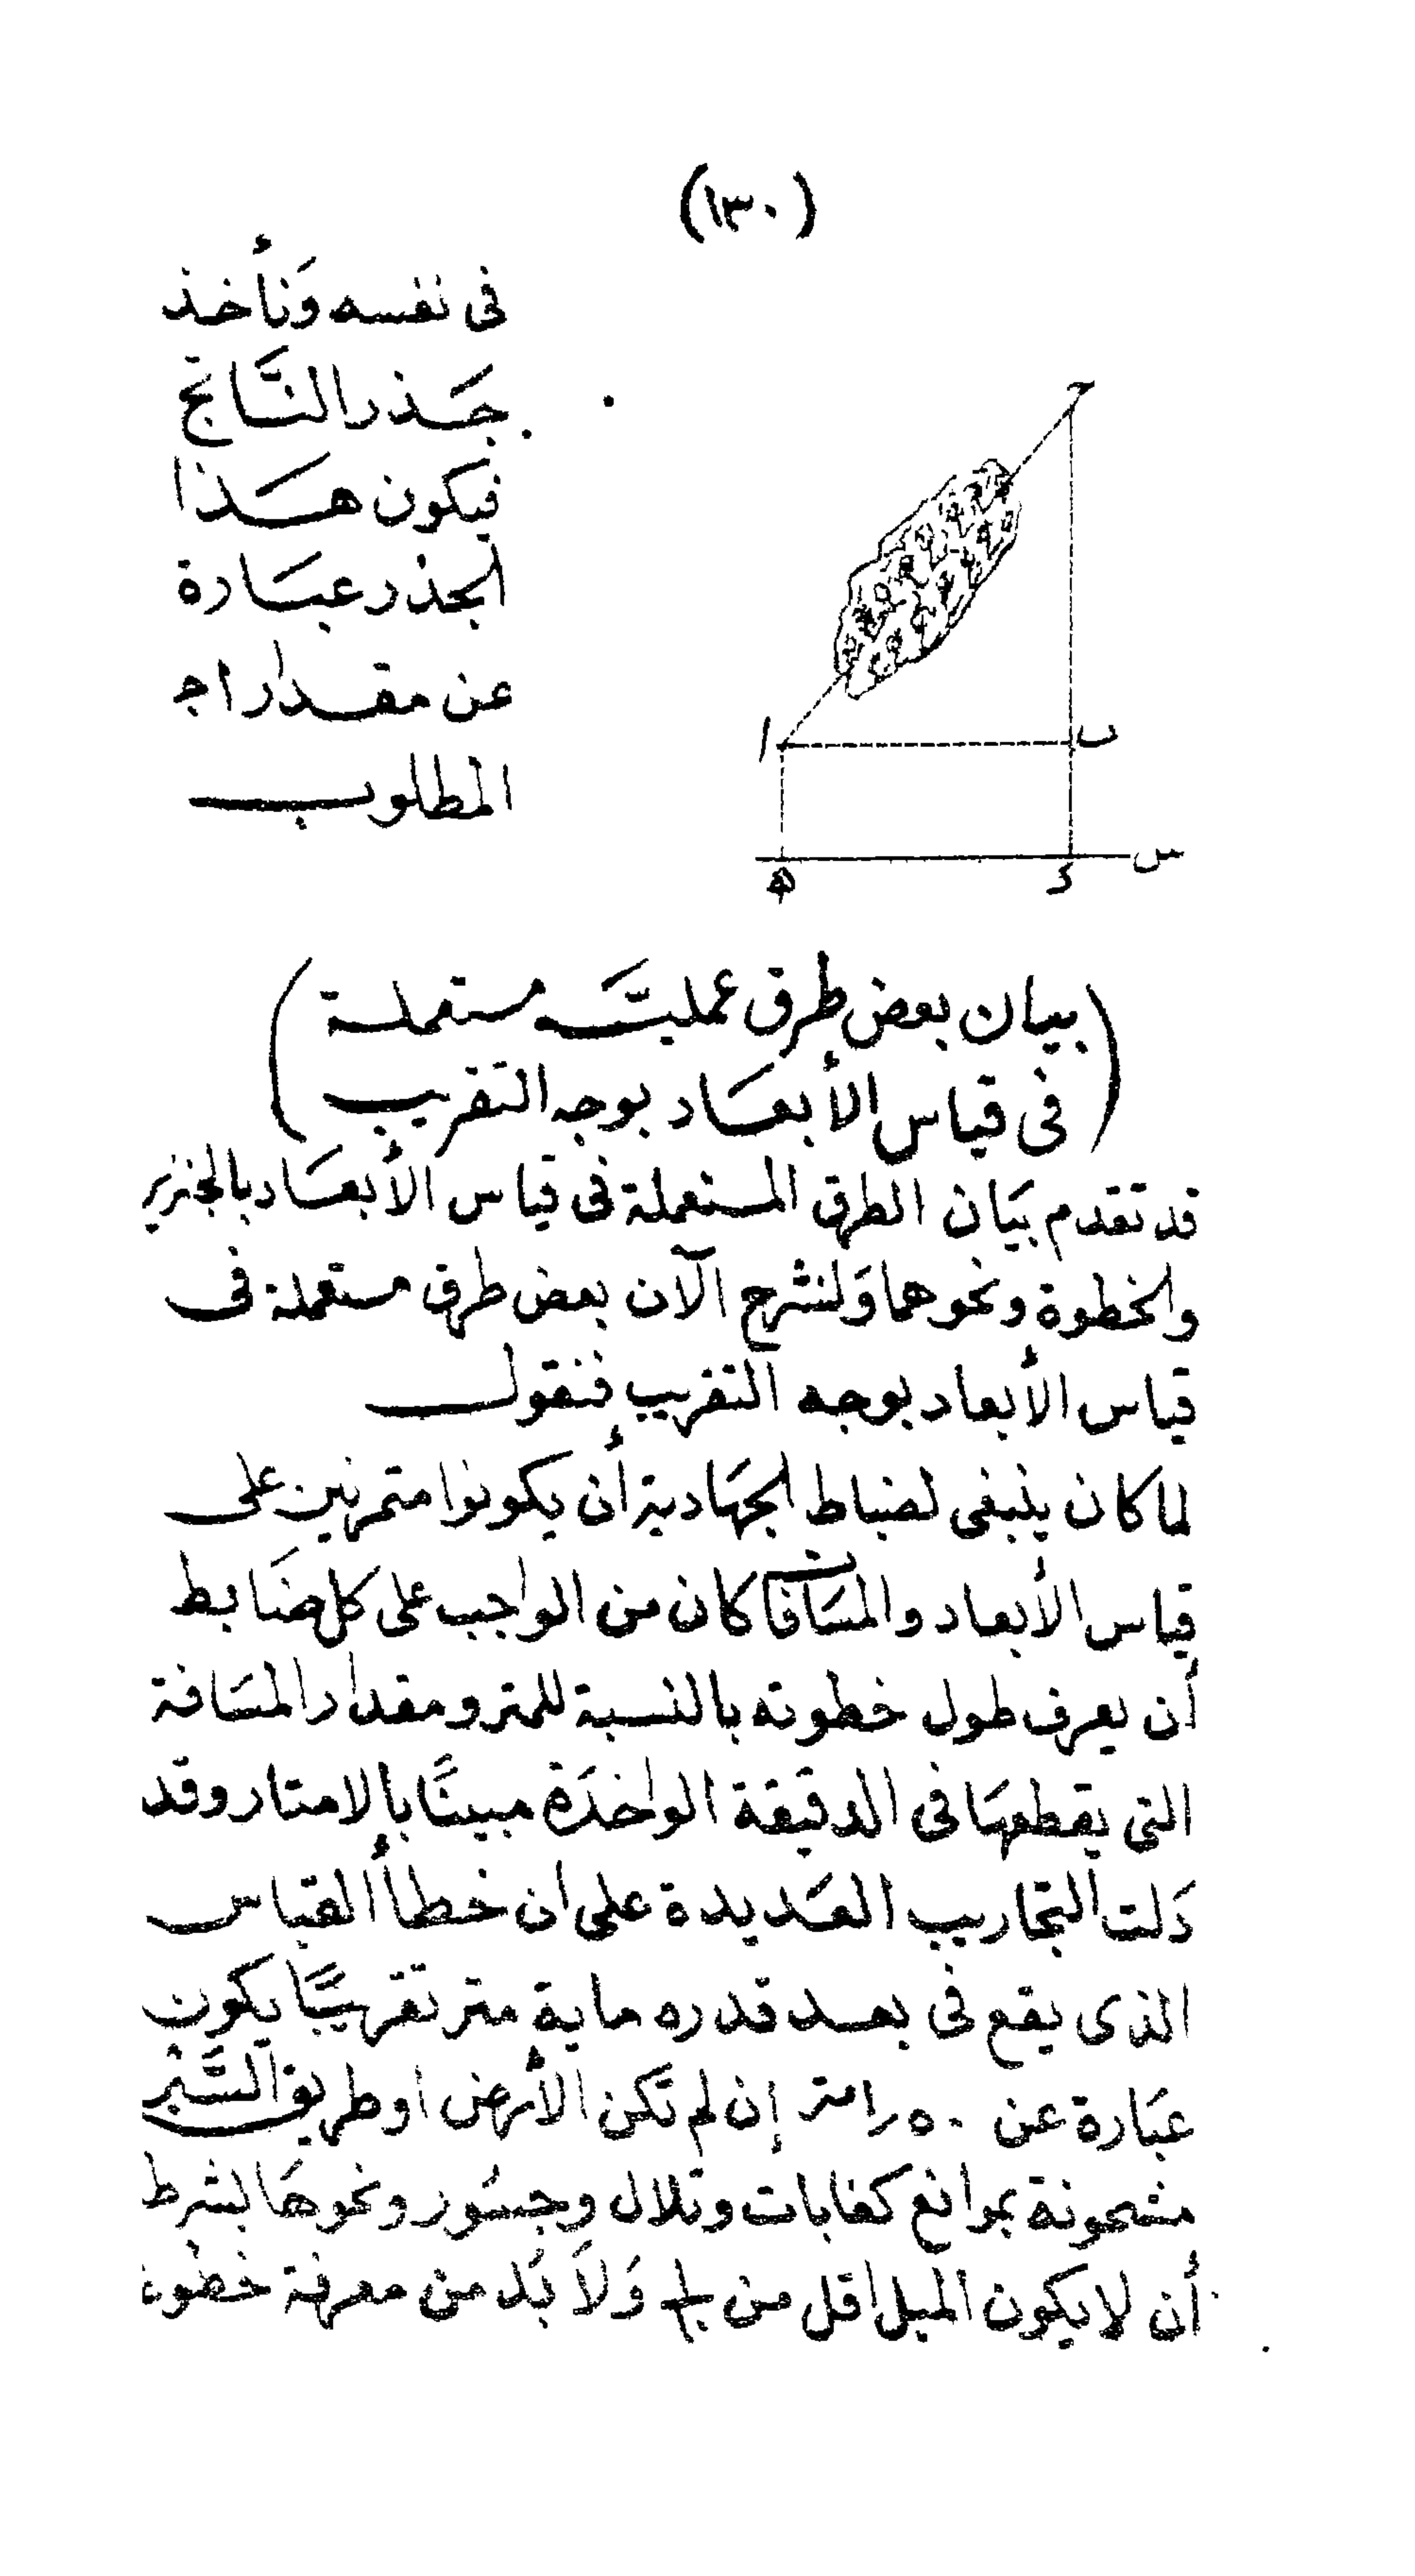 (١٣٠)
فى نفسه وَنأخذ
جَذر النَّاتج
فيكون هَذا
الجذر عبَارة
عن مقدار ا ج
المطلوب
ح
ا
ب
س
ه
د
(بيان بعض طرق عمليَّه مستعملة)
(فى قياس الأبعَاد بوجه التقريب)
قد تقدم بيَان الطرق المستعملة فى قياس الأبعَاد بالجنزير
والخطوة ونحوهما وَلنشرح الآن بعض طرق مستعملة فى
قياس الأبعاد بوجه التقريب فنقول
لما كان ينبغى لضباط الجهَادية أن يكونوا متمرنين على
قياس الأبعاد والمسَافات كان من الواجب على كل ضَابط
أن يعرف طول خطوته بالنسبة للمتر ومقدار المسَافة
التى يقطعهَا فى الدقيقة الواحدَة مبينًا بالامتار وقد
دَلت التجاريب العَديدة على ان خطأ القياس
الذى يقع فى بعد قدره ماية متر تقريبًا يكون
عبَارة عن ٥٠ر١ متر إن لم تكن الأرض او طريق السَّير
مشحونة بموانع كغابات وتلال وجسُور ونحوهَا بشرط
أن لا يكون الميل اقل من وَلاَ بُد من معرفة خطوة